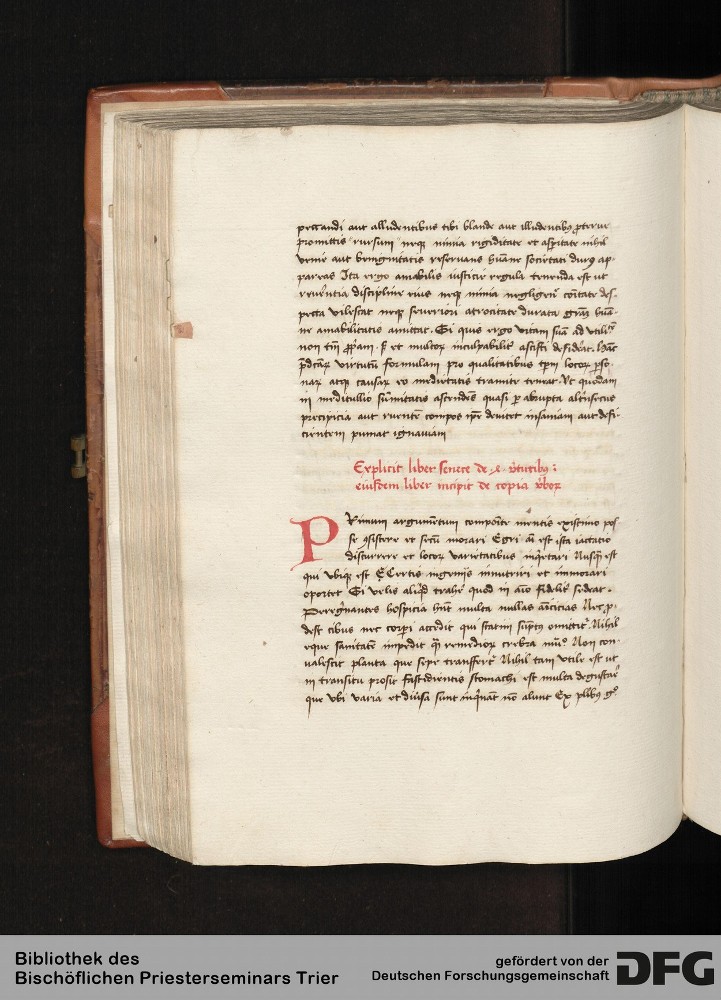 peccandi aut alludentibus tibi blande aut illudentibꝰ ꝓterue
promittis rursum neqꝫ nimia rigiditate et asꝑitate nihil
venie aut benignitatis reseruans huāne societati durꝰ ap-
pareas Ita ergo amabilis iusticie regula tenenda est ut
reuerentia discipline eius neqꝫ nimia negligen̄ cōitate des-
pecta vilescat neqꝫ seueriori atrocitate durata gr̄am huā-
ne amabilitatis amittat. Si quis ergo vitam suā ad vtilitē
non tm̄ ꝓpͥam. sꝫ et multoꝝ inculpabilit̄ ascisci desiderat. Hāc
p̄dc̄aꝝ virtutū formulam pro qualitatibus tp̄m locoꝝ ꝑso-
naꝝ atqꝫ causaꝝ eo medietatis tramite teneat. Vt quodam
in meditullio sūmitatis ascendēs quasi ꝑ abrupta altrīsecus
precipicia aut ruentē compos ip̄e deuitet insaniam aut defi-
cientem puniat ignauiam
Explicit liber senece de .4. v̄tutibꝰ :
eiusdem liber incipit de copia v̄boꝝ
PRimum argumētum composite mentis existimo pos
se ꝯsistere et secū morari Egri aī est ista iactatio
discurrere et locoꝝ varietatibus inq̄etari Nusq̄ est
qui vbiqꝫ est Certis ingenijs innutriri et inmorari
oportet Si velis aliqͥd trahē quod in aīo fidelit̄ sedeat.
Peregͥnantes hospicia hn̄t multa nullas amicicias Nec ꝓ-
dest cibus nec corꝑi accedit qui statim sūptꝰ emittit᷑ Nihil
eque sanitatē impedit q̄ꝫ remedioꝝ crebra mutͦ Non con-
ualescit planta que sepe transffert᷑ Nihil tam vtile est ut
in transitu prosit fastidientis stomachi est multa degustare
que vbi varia et diu̓sa sunt inqͥnant nō alunt Ex pl̄ibus gͦ
Bibliothek des
Bischöflichen Priesterseminars Trier
gefördert von der
Deutschen Forschungsgemeinschaft
DFG